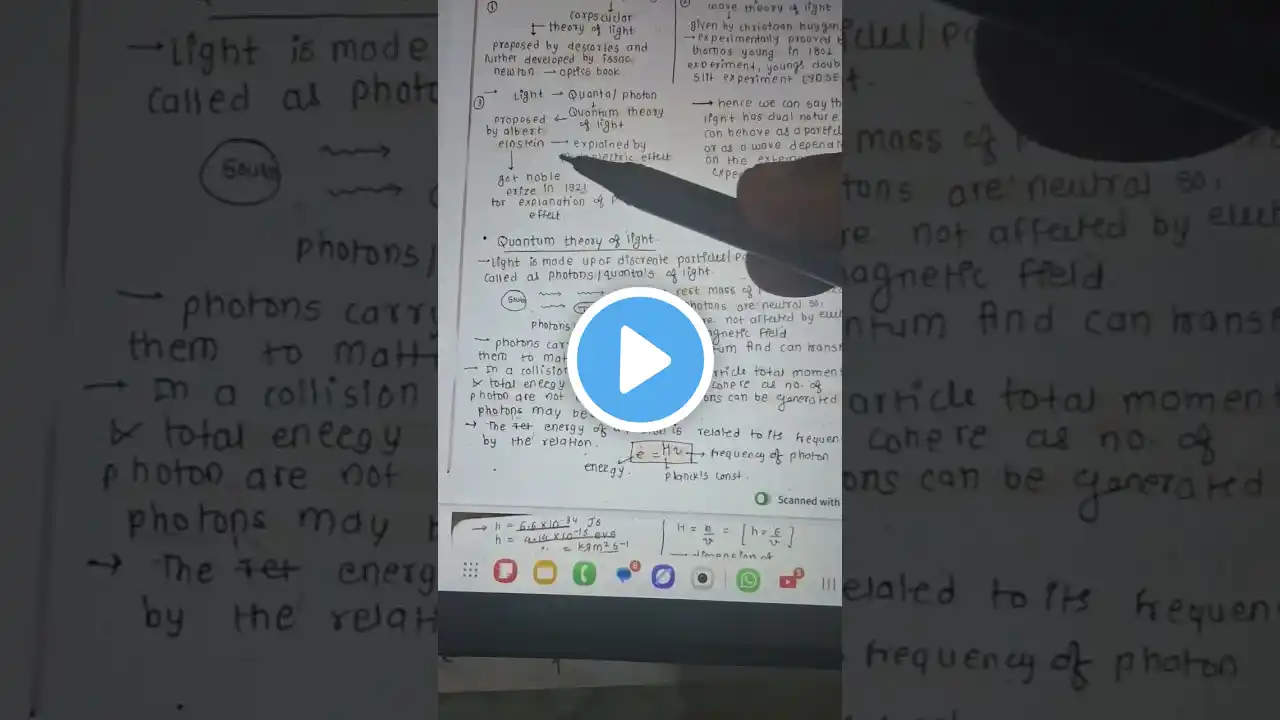 ①
corpscular
theory of light
proposed by descartes and
further developed by issac
newton → optics book.
②
wave theory of light
given by christaan huygen
→ experimentally prooved b
thomas young in 1802
experiment, youngs doub
slit experiment (YDSE
③
→ light → Quanta/photon
Quantum theory
of light
proposed
by albert
einstein → explained by
electric effect
got noble
prize in 1921
for explanation of
effect
→ hence we can say th
light has dual nature
can behave as a particl
or as a wave depend
on the extern
expe
• Quantum theory of light
→ light is made up of discreate particles/
called as photons/quanta's of light.
rest mass of
photons are neutral so,
not affected by elect
magnetic field
photons
→ photons car
them to mat
and can transf
→ In a collision
particle total moment
& total energy
cohere as no. of
photon are not
can be generated
photons may be
→ The energy of
is related to its frequen
by the relation.
e = Hν → frequency of photon
energy.
planck's const.
Scanned with
→ h = 6.6×10⁻³⁴ Js
h =
= kgm²s⁻¹
H = E/ν = [h = E/ν]
→ dimension of
→ Light is made
called as photo
Source
photons/
→ photons carry
them to matt
→ In a collision
& total energy
photon are not
photons may
→ The energ
by the relat
mass of
tons are neutral so,
not affected by elect
magnetic field
and can transf
article total moment
cohere as no. of
ons can be generated
elated to its frequen
frequency of photon